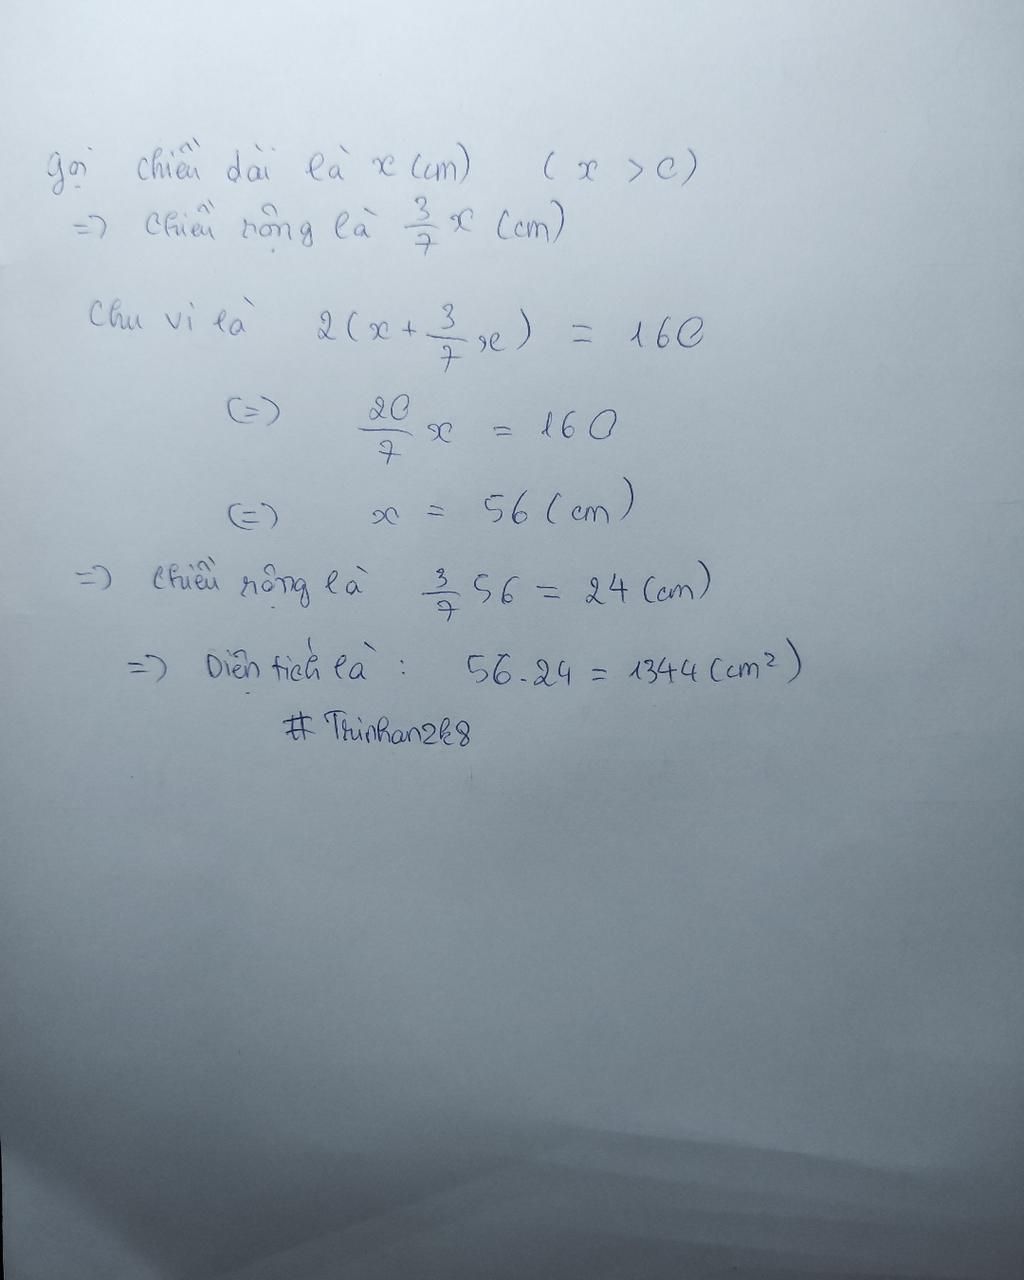 gọi chiều dài là x (cm) ( x > 0)
=> chiều rộng là 3/7 x (cm)
Chu vi là 2(x + 3/7 x) = 160
(=) 20/7 x = 160
(=) x = 56 (cm)
=> chiều rộng là 3/7 56 = 24 (cm)
=> Diện tích là : 56.24 = 1344 (cm²)
# Thinhan2k8